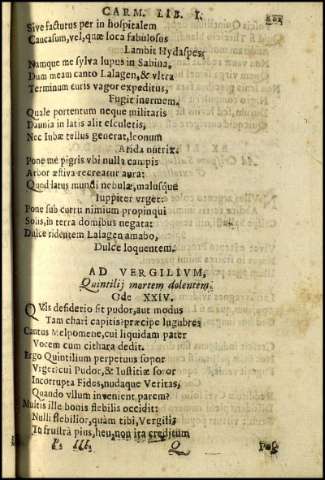 CARM. LIB. I.
Sive facturus per inhospitalem
Caucasum, vel, quæ loca fabulosus
Lambit Hydaspes.
Namque me sylva lupus in Sabina,
Dum meam canto Lalagen, & vltra
Terminum curis vagor expeditus,
Fugit inermem.
Quale portentum neque militaris
Daunia in latis alit esculetis,
Nec Iubæ tellus generat, leonum
Arida nutrix.
Pone me pigris vbi nulla campis
Arbor æstiva recreatur aura:
Quod latus mundi nebulæ, malusque
Iuppiter urget:
Pone sub curru nimium propinqui
Solis, in terra domibus negata:
Dulce ridentem Lalagen amabo,
Dulce loquentem.
AD VERGILIVM,
Quintilij mortem dolentem.
Ode XXIV.
QVis desiderio sit pudor, aut modus
Tam chari capitis? præcipe lugubres
Cantus Melpomene, cui liquidam pater
Vocem cum cithara dedit.
Ergo Quintilium perpetuus sopor
Vrget: cui Pudor, & Iustitiæ soror
Incorrupta Fides, nudaque Veritas,
Quando vllum invenient parem?
Multis ille bonis flebilis occidit:
Nulli flebilior, quàm tibi, Vergili,
Tu frustrà pius, heu, non ita creditum
Q
Pos-